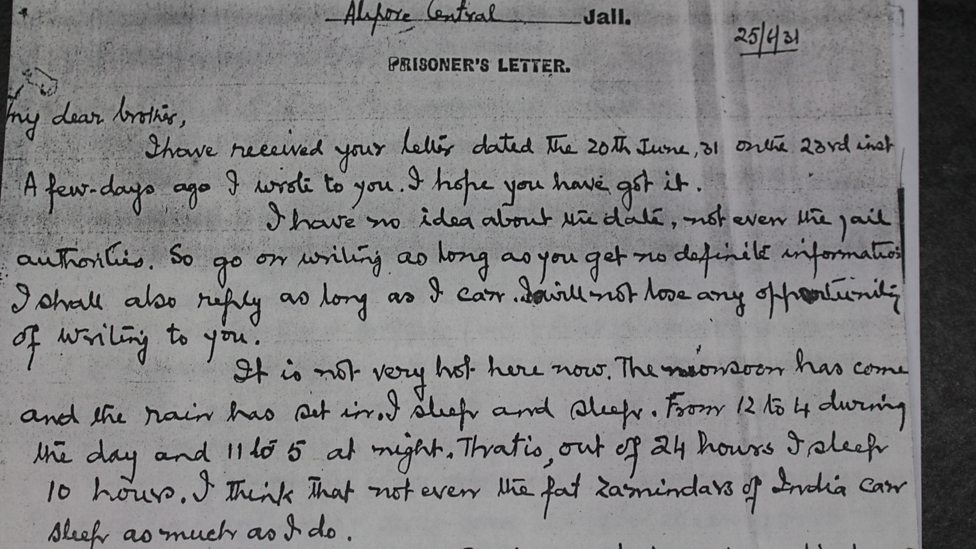 Alipore Central Jail.
25/6/31
PRISONER'S LETTER.
My dear brother,
I have received your letter dated the 20th June, 31 on the 23rd inst
A few-days ago I wrote to you. I hope you have got it.
I have no idea about the date, not even the jail
authorities. So go on writing as long as you get no definite information
I shall also reply as long as I can. I will not lose any opportunity
of writing to you.
It is not very hot here now. The monsoon has come
and the rain has set in. I sleep and sleep. From 12 to 4 during
the day and 11 to 5 at night. That is, out of 24 hours I sleep
10 hours. I think that not even the fat Zamindars of India can
sleep as much as I do.